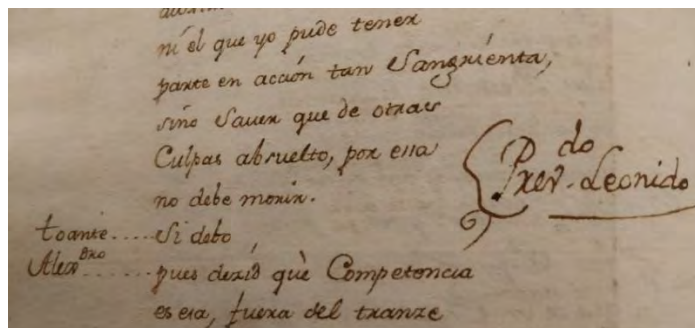 ni el que yo pude tener
parte en acción tan Sangrienta,
sino Saver que de otras
Culpas absuelto, por essa
no debe morir.
Prev.do Leonido
toante.... Si debo
Alexdro...... pues dezid què Competencia
es esa, fuera del tranze